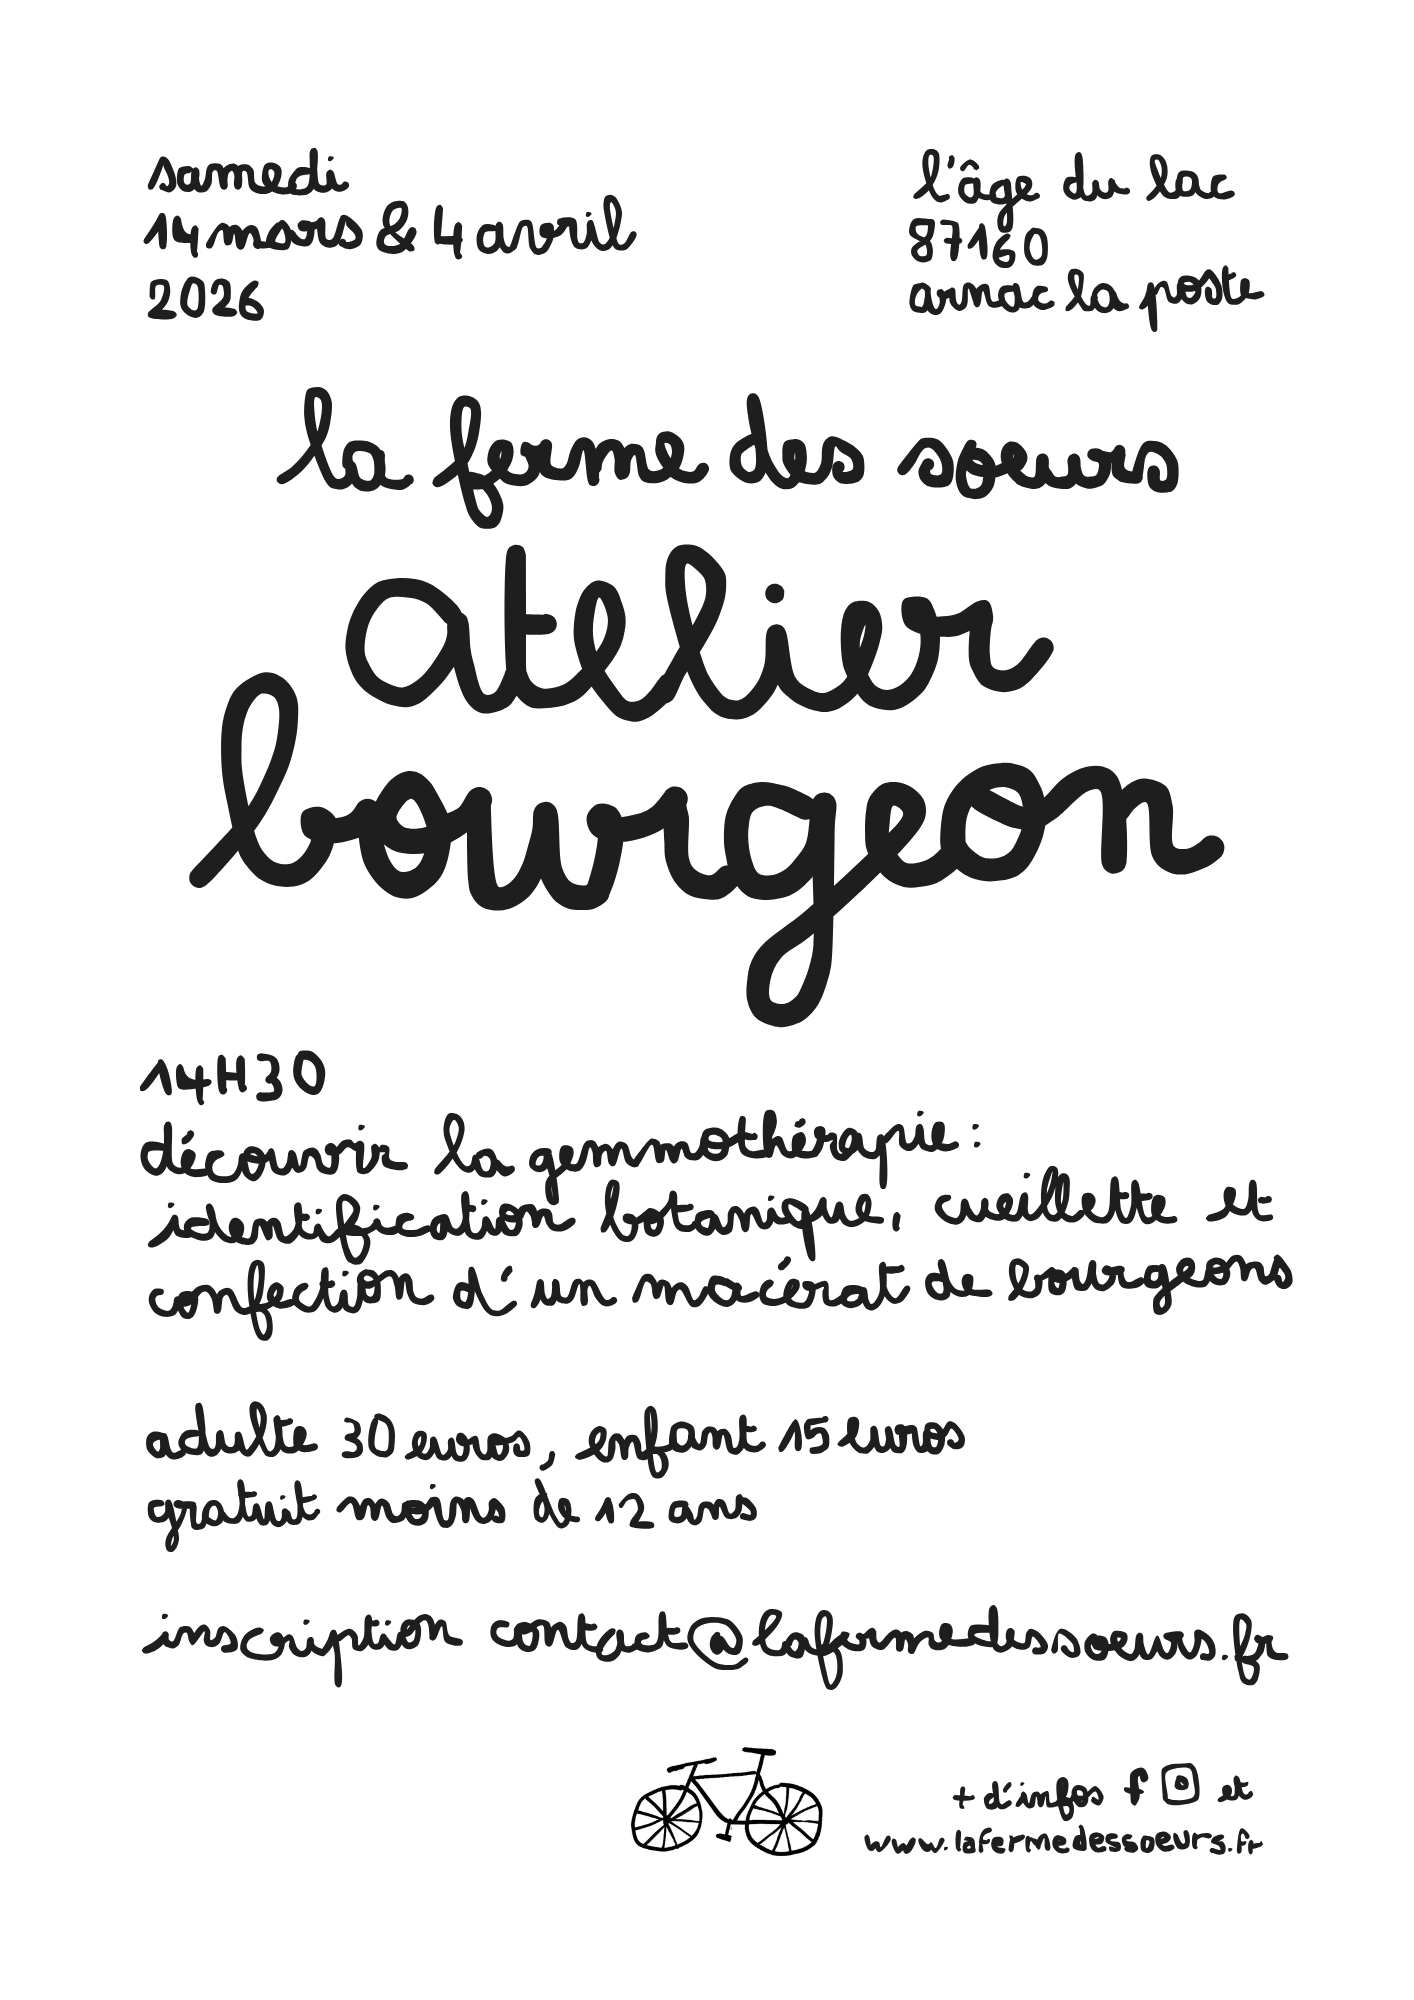 samedi
14 mars & 4 avril
2026
l'âge du lac
87160
arnac la poste
la ferme des soeurs
atelier
bourgeon
14H30
découvrir la gemmothérapie :
identification botanique, cueillette et
confection d'un macérat de bourgeons
adulte 30 euros, enfant 15 euros
gratuit moins de 12 ans
inscription contact@lafermedessoeurs.fr
+ d'infos f et
www.lafermedessoeurs.fr